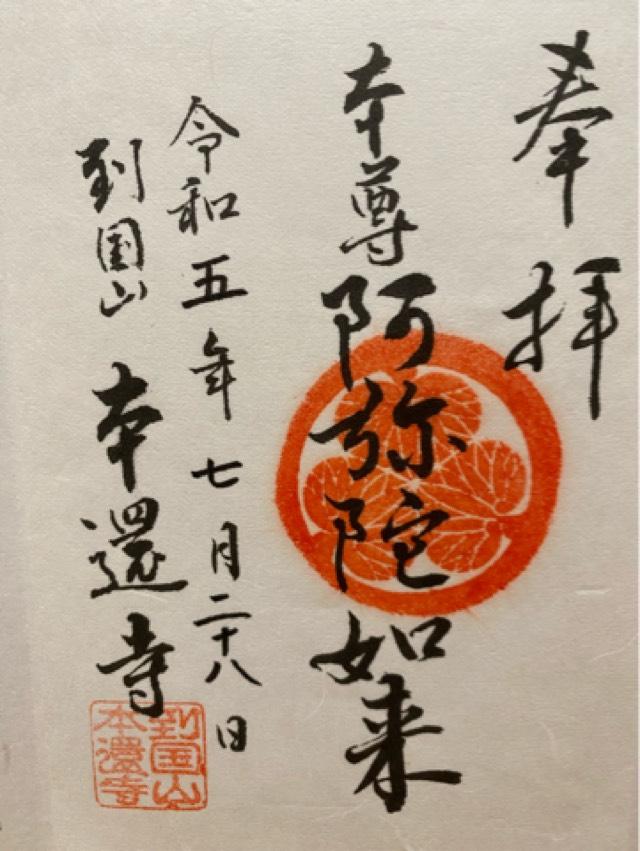 奉拝
本尊阿弥陀如来
令和五年七月二十八日
到国山本還寺
到国山
本還寺